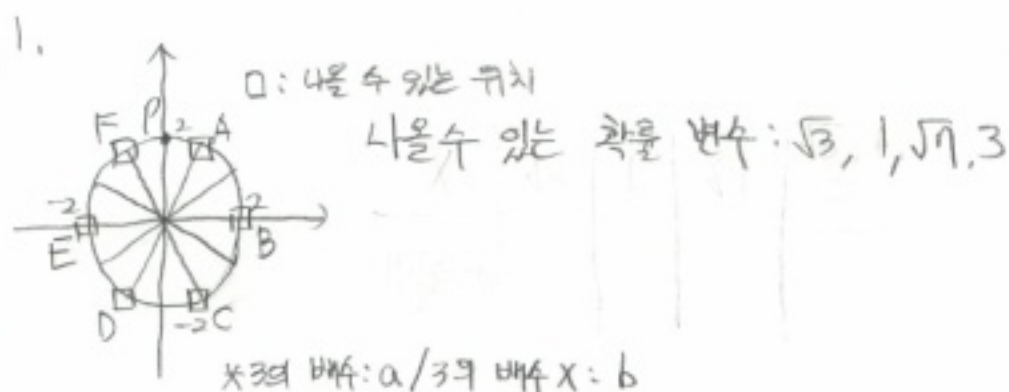 1.
□: 나올 수 있는 위치
나올 수 있는 확률 변수: √3, 1, √7, 3
F P 2 A
-2 2
E B
D -2 C
※3의 배수: a / 3의 배수 X: b